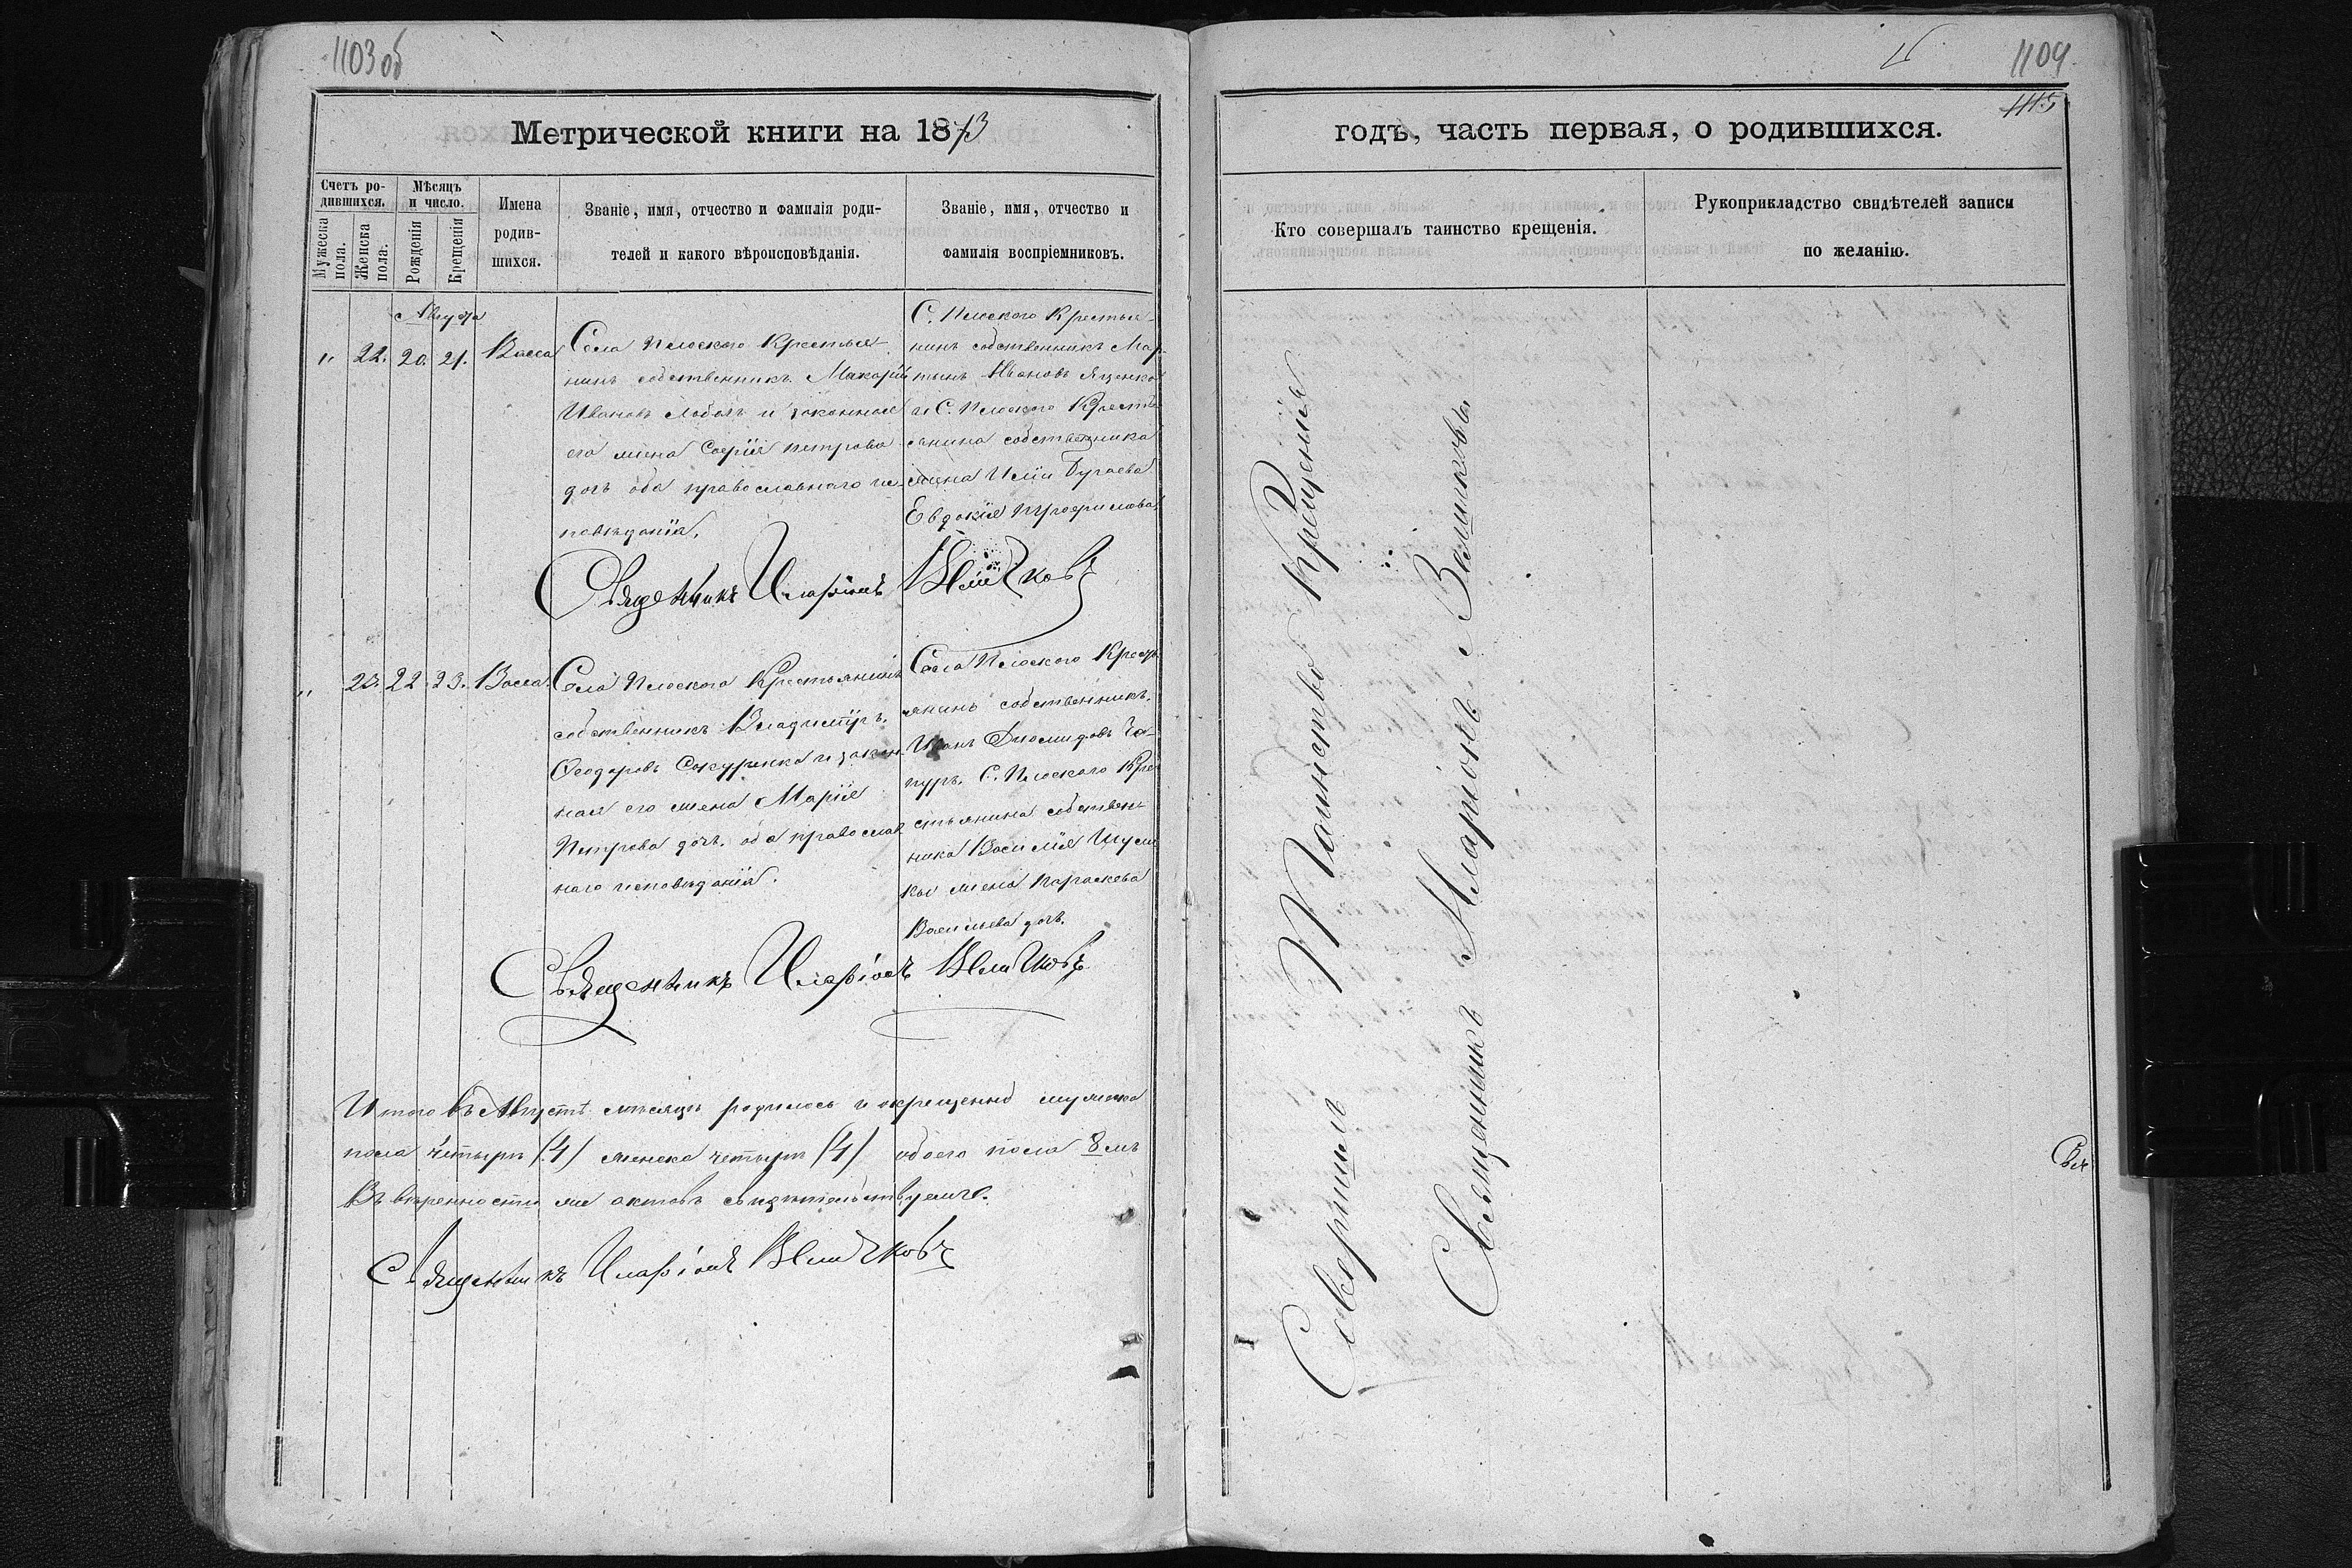 1103 об
Метрической книги на 1873
Счетъ ро-
дившихся.
Мѣсяцъ
и число.
Мужеска
пола.
Женска
пола.
Рожденія
Крещенія
Имена
родив-
шихся.
Званіе, имя, отчество и фамилія роди-
телей и какого вѣроисповѣданія.
Званіе, имя, отчество и
фамилія воспріемниковъ.
Августа
" 22. 20. 21. Васса
Села Плоского Крестья-
нинъ собственникъ Макарій
Ивановъ и законная
его жена Софія Петрова
дочь оба православнаго ис-
повѣданія.
С. Плоского Крестья-
нинъ собственникъ Мар-
тынъ Ивановъ Яценко
и С. Плоского Кресть-
янина собственника
жена Иліи Бугаева
Евдокія
Священникъ Иларіонъ
" 23. 22. 23. Васса.
Села Плоского Крестьянинъ
собственникъ Владиміръ
Ѳеодоровъ и закон-
ная его жена Марія
Петрова дочь. оба православ-
наго исповѣданія.
Села Плоского Кресть-
янинъ собственникъ
Иванъ Диомидовъ Ча-
пуръ. С. Плоского Кре-
стьянина собствен-
ника Василія
жена Параскева
Васильева дочь.
Священникъ Иларіонъ
Итого въ Августѣ мѣсяцѣ родилось и окрещенно мужеска
пола четыри (4) женска четыри (4) обоего пола 8мъ
Въ вѣренности же актовъ свидѣтельствуемъ.
Священникъ Иларіонъ
1104
1115
годъ, часть первая, о родившихся.
Кто совершалъ таинство крещенія.
Рукоприкладство свидѣтелей записи
по желанію.
Совершилъ Таинство Крещенія
Священникъ Иларіонъ